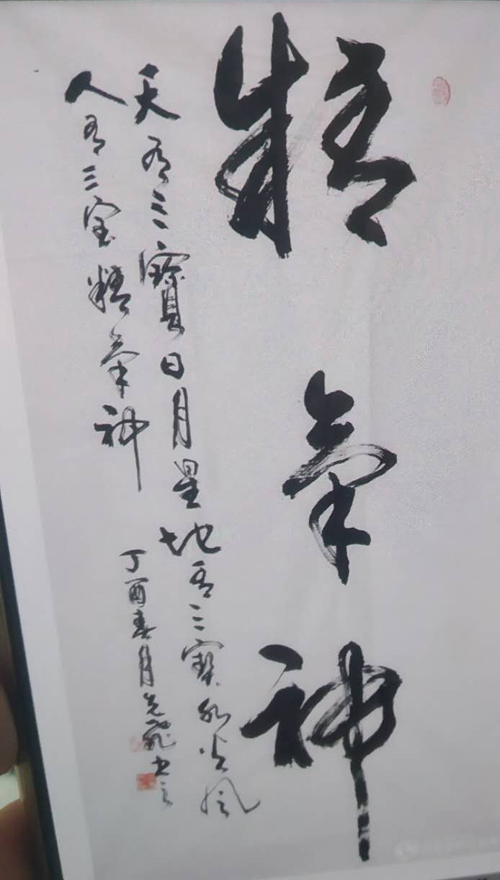 精氣神
天有三寶日月星地有三寶水火風
人有三宝精氣神
丁酉春月